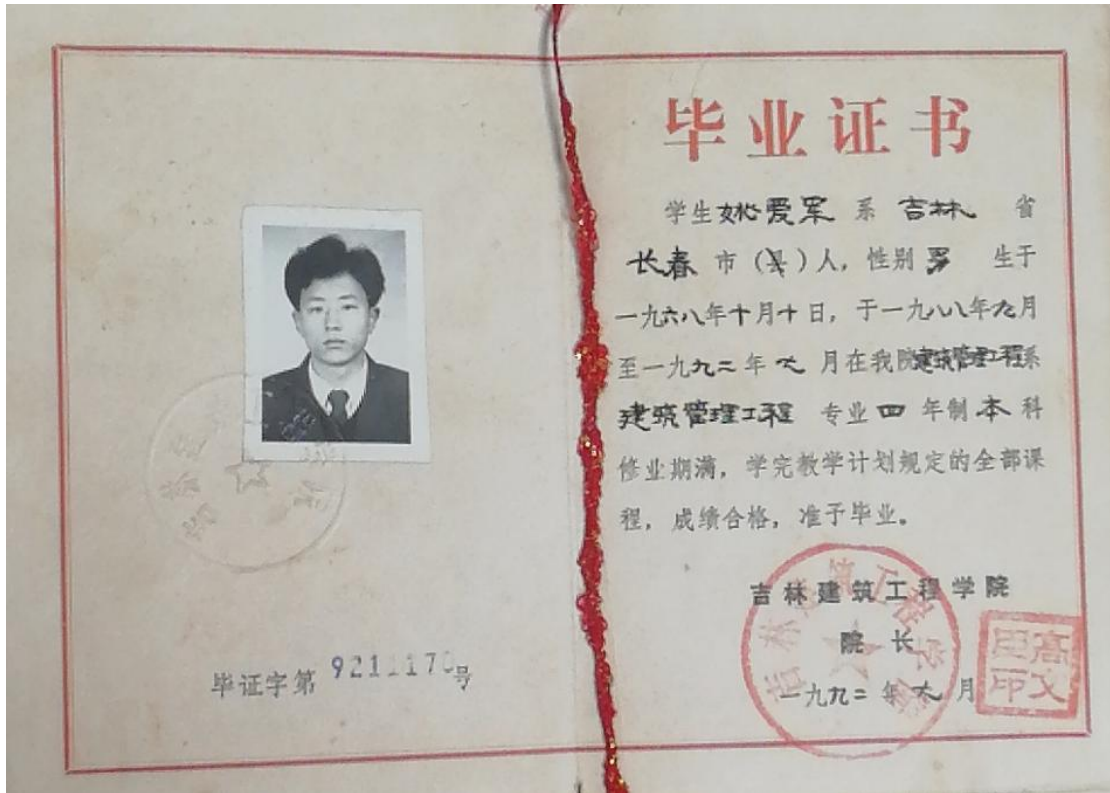 毕证字第 9211170号
毕业证书
学生姚爱军 系 吉林 省
长春 市（县）人，性别 男 生于
一九六八年十月十日，于一九八八年九月
至一九九二年 月在我院建筑管理工程系
建筑管理工程 专业 四 年制 本 科
修业期满，学完教学计划规定的全部课
程，成绩合格，准予毕业。
吉林建筑工程学院
院长
一九九二年 月
吉林建筑工程学院